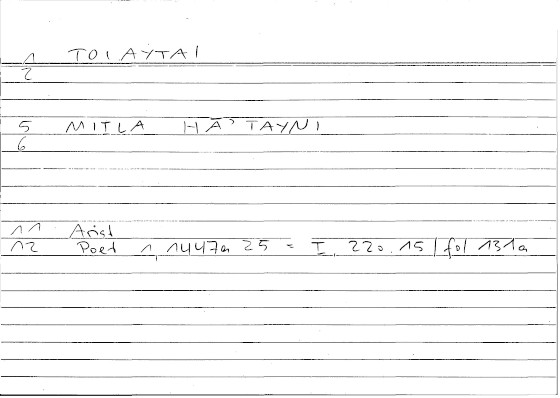 1 TOIAYTAI
2
5 MITLA HA'TAYNI
6
11 Arist
12 Poet 1, 1447a 25 = I, 220.15 / fol 131a